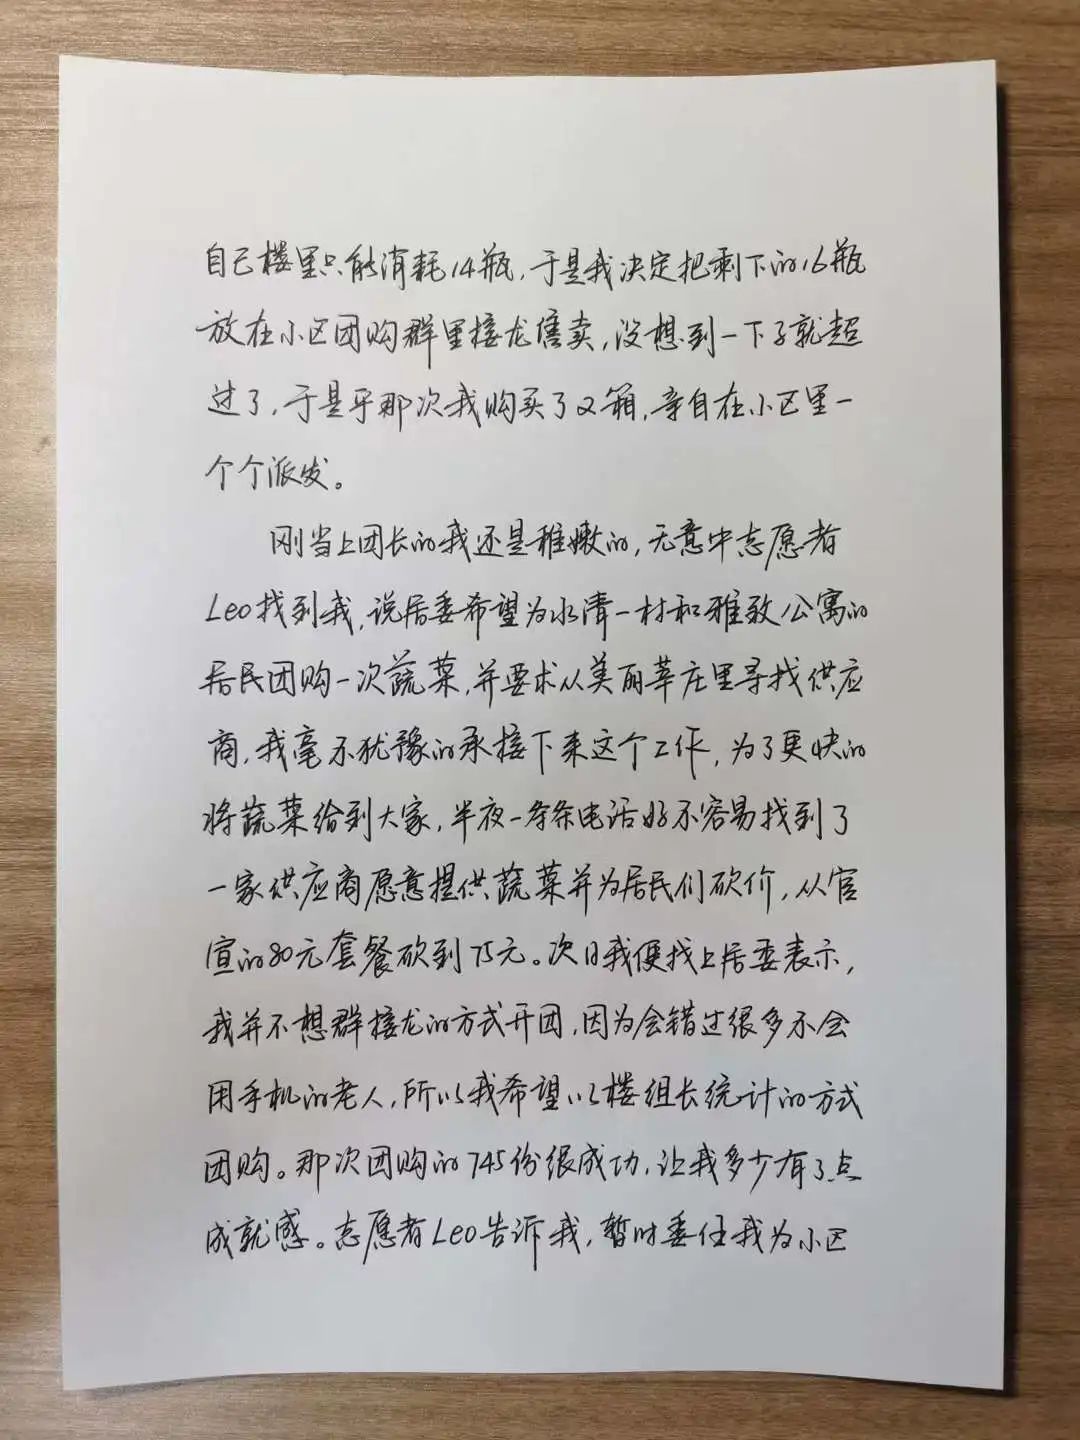 自己楼里只能消耗14瓶,于是我决定把剩下的16瓶
放在小区团购群里接龙售卖,没想到一下子就超
过了,于是乎那次我购买了2箱,亲自在小区里一
个个派发。
刚当上团长的我还是稚嫩的,无意中志愿者
Leo找到我,说居委希望为水清一村和雅致公寓的
居民团购一次蔬菜,并要求从美丽莘庄里寻找供应
商,我毫不犹豫的承接下来这个工作,为了更快的
将蔬菜给到大家,半夜一条条电话好不容易找到了
一家供应商愿意提供蔬菜并为居民们砍价,从官
宣的80元套餐砍到75元。次日我便找上居委表示,
我并不想群接龙的方式开团,因为会错过很多不会
用手机的老人,所以我希望以楼组长统计的方式
团购。那次团购的745份很成功,让我多少有了点
成就感。志愿者Leo告诉我,暂时委任我为小区